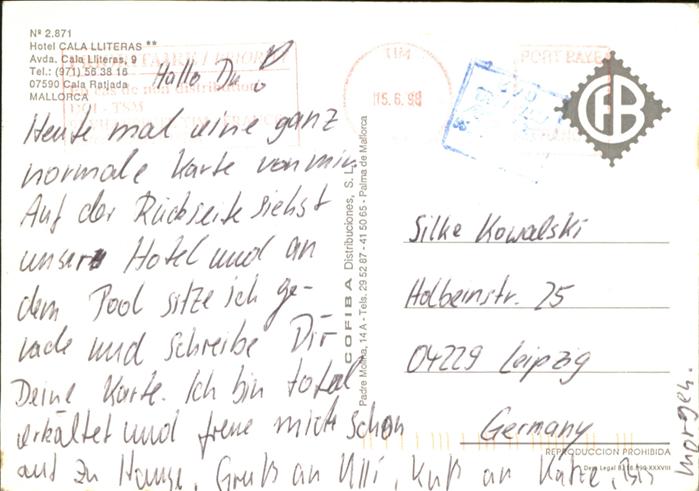 Nº 2.871
Hotel CALA LLITERAS **
Avda. Cala Lliteras, 9
Tel.: (971) 56 38 16
07590 Cala Ratjada
MALLORCA
Hallo Du
Heute mal eine ganz
normale Karte von mir.
Auf der Rückseite siehst
unser Hotel und an
dem Pool sitze ich ge-
rade und schreibe Dir
Deine Karte. Ich bin total
erkältet und freue mich schon
auf zu Hause. Gruß an Ulli, Kuß an Katze, Bis
morgen.
COFIBA Distribuciones, S. L.
Padre Molina, 14 A - Tels. 29 52 87 - 41 50 65 - Palma de Mallorca
TIM
15.6.98
PORT PAYE
CFB
Silke Kowalski
Holbeinstr. 25
04229 Leipzig
Germany
REPRODUCCION PROHIBIDA